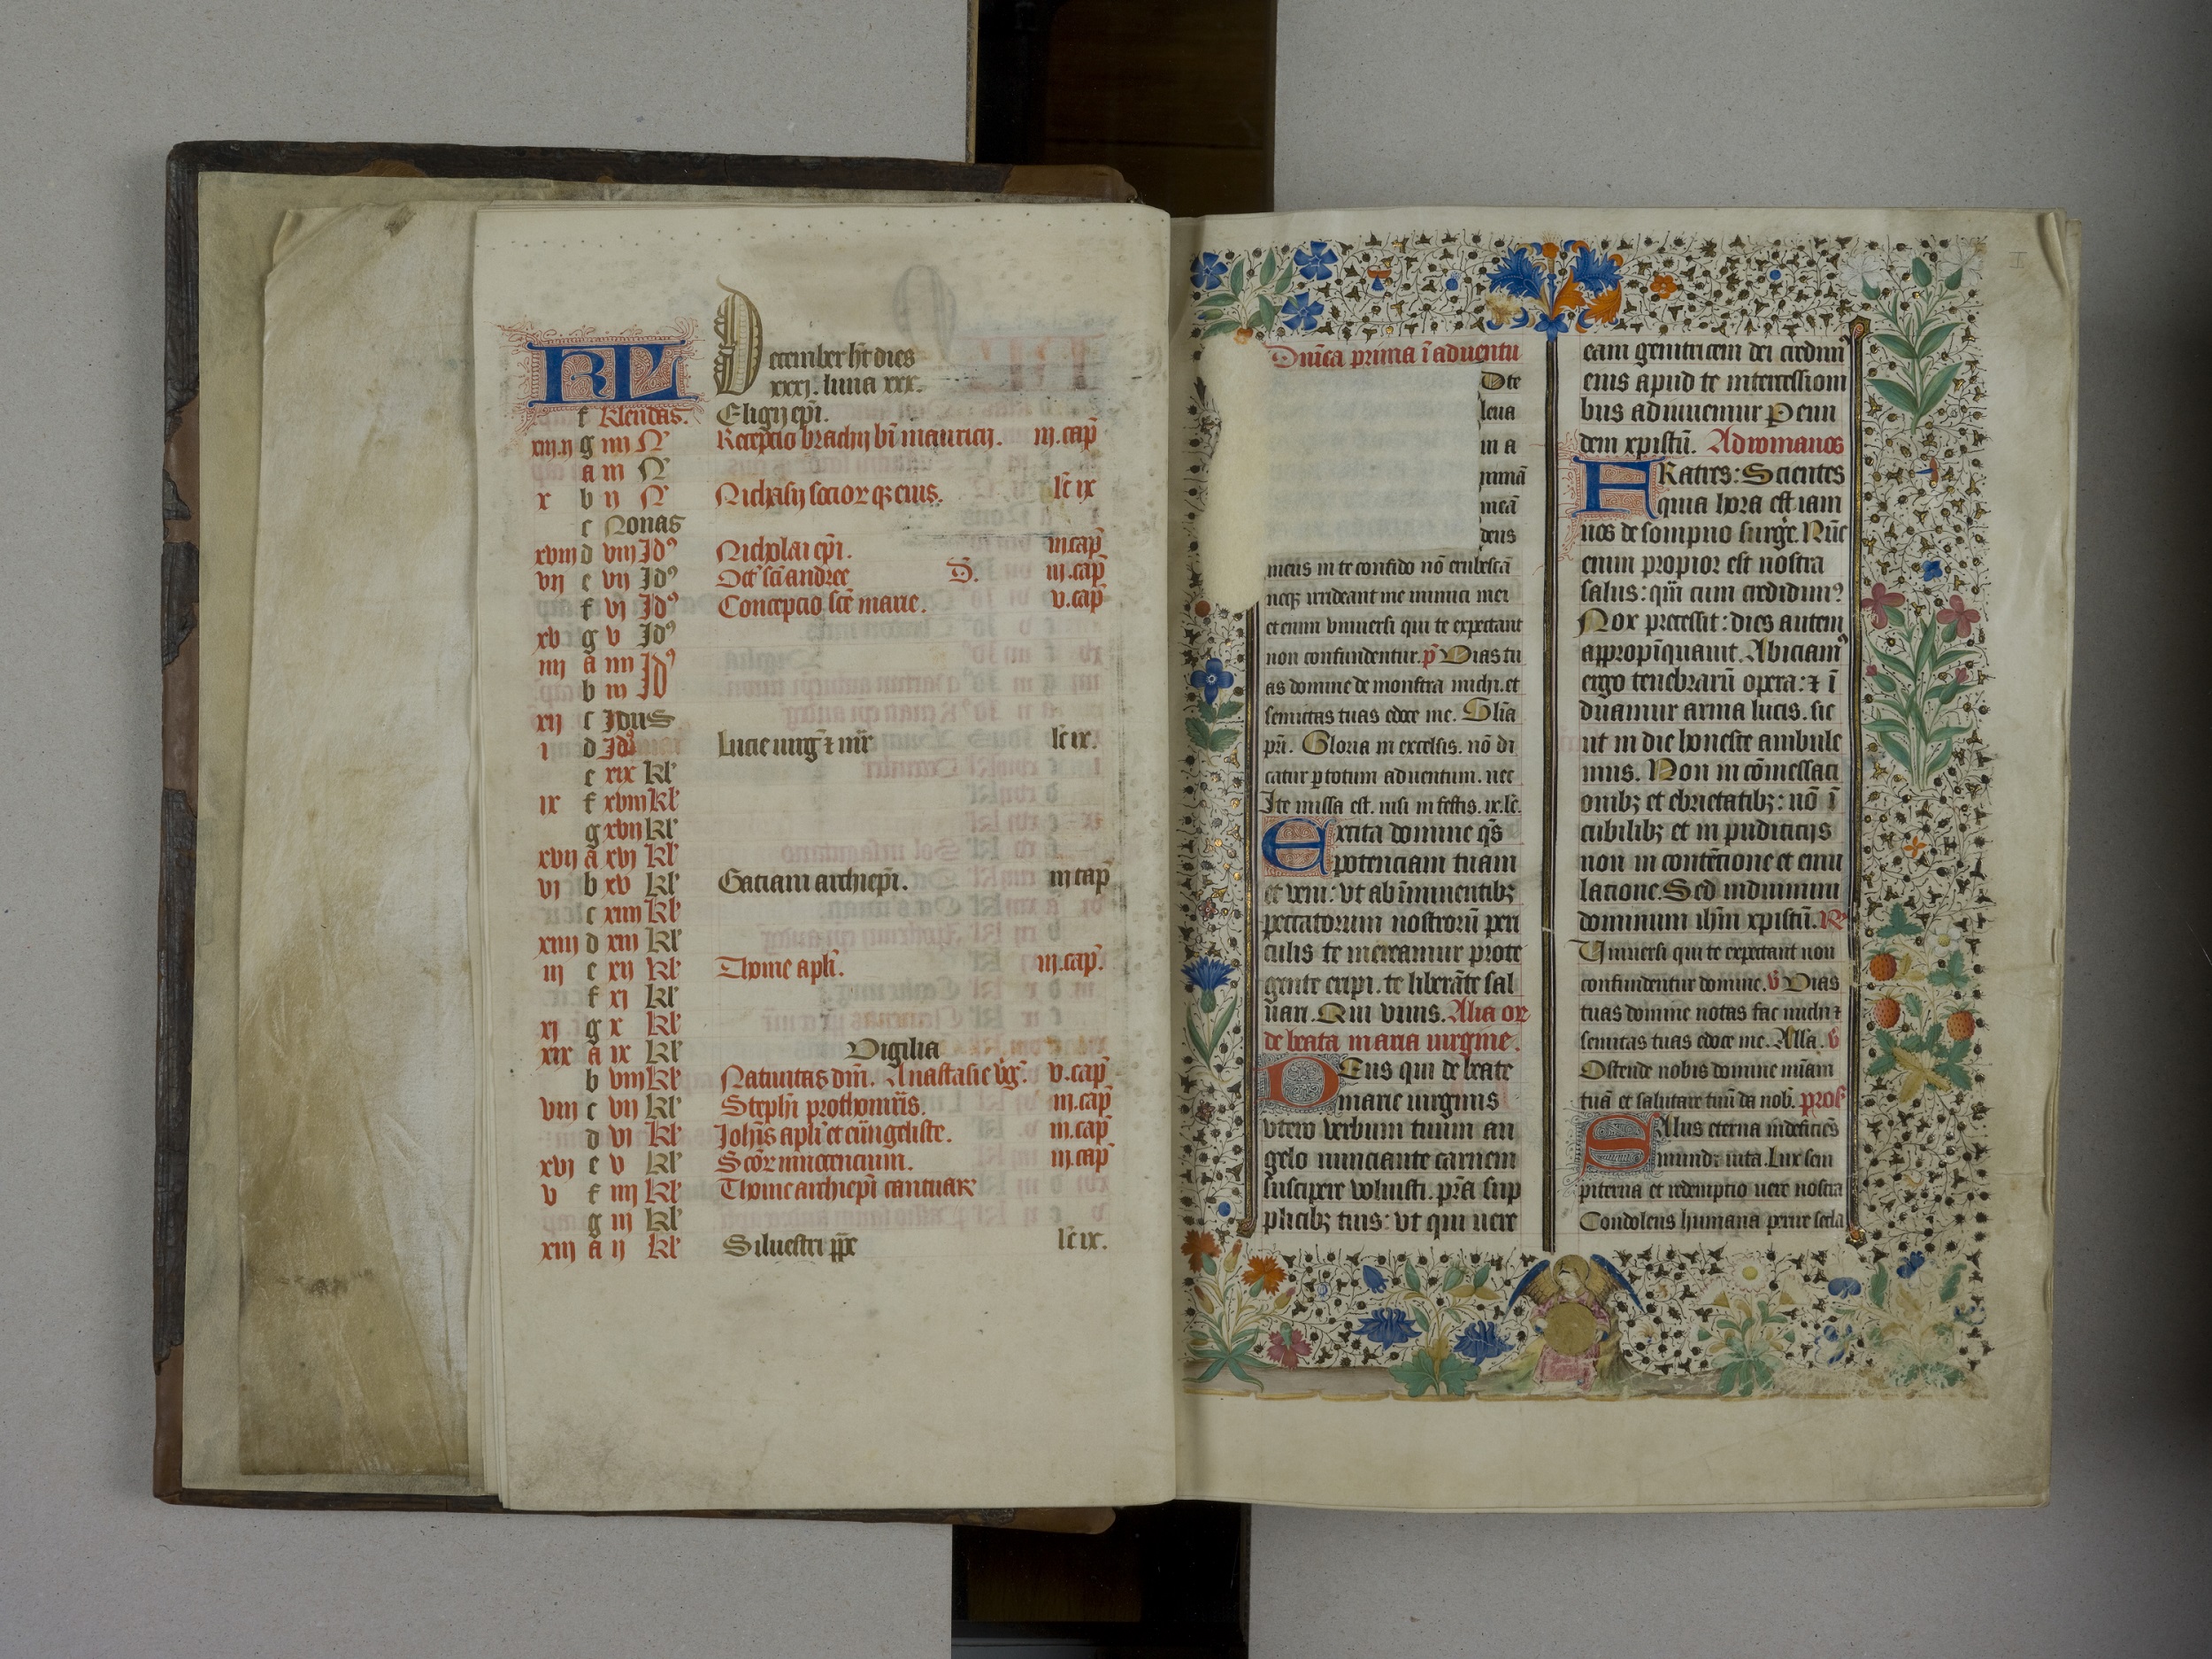 KL December ht dies
xxxj. luna xxx.
f klendas. Eligij epi.
xiij.ij g iiij N' Receptio brachij bi mauricij. iij.cap
a iij N'
x b ij N' Nichasij socior qz eius. lc ix
c Nonas
xviij d viij Jd' Nicholai epi. iij.cap
vij e vij Jd' Oct' sci andree D. iij.cap
f vj Jd' Concepcio sce marie. v.cap
xv g v Jd'
iiij a iiij Jd'
b iij Jd
xij c Jdus
i d Jd' Lucie uirg' & mr lc ix.
e xix kl'
ix f xviij kl'
g xvij kl'
xvij a xvj kl'
vj b xv kl' Gaciani archiepi. iij cap
c xiiij kl'
xiiij d xiij kl'
iij e xij kl' Thome apli. iij.cap.
f xj kl'
xj g x kl'
xix a ix kl' Vigilia
b viij kl' Natiuitas dni. Anastasie vg'. v.cap
viij c vij kl' Stephi prothomris. iij.cap
d vi kl' Johis apli et eungeliste. iij.cap
xvj e v kl' Scor innocencium. iij.cap
v f iiij kl' Thome archiepi cantuar
g iij kl'
xiij a ij kl' Siluestri ppe lc ix.
Dnica prima i aduentu
Dte
leua
ui a
nimā
meā
deus
meus in te confido nō erubescā
neqz irrideant me inimici mei
et enim vniuersi qui te expectant
non confundentur. p̄ Vias tu
as domine de monstra michi. et
semitas tuas edoce me. Gl̄ia
pr̄i. Gloria in excelsis. nō di
catur p totum aduentum. nec
Ite missa est. nisi in festis. ix. lc̄.
Excita domine qs̄
potenciam tuam
et veni: vt ab īminentibz
peccatorum nostrorū peri
culis te mereamur prote
gente eripi. te liberāte sal
uari. Qui viuis. Alia or
de beata maria uirgine.
DEus qui de beate
marie uirginis
vtero verbum tuum an
gelo nunciante carnem
suscipere voluisti. pr̄a sup
plicibz tuis: vt qui uere
eam genitricem dei credim'
eius apud te intercessioni
bus adiuuemur Per eun
dem xpistū. Ad romanos
FRatres: Scientes
quia hora est iam
nos de sompno surge. Nūc
enim propior est nostra
salus: qm̄ cum credidim'
Nox precessit: dies autem
appropīquauit. Abiciam'
ergo tenebrarū opera: & ī
duamur arma lucis. sic
ut in die honeste ambule
mus. Non in cōmessaci
onibz et ebrietatibz: nō ī
cubilibz et in pudicicijs
non in contēcione et emu
lacione. Sed induimini
dominum ihm̄ xpistū. R
Vniuersi qui te expectant non
confundentur domine. v Vias
tuas domine notas fac michi &
semitas tuas edoce me. Alla. v
Ostende nobis domine mīam
tuā et salutare tuū da nob. pros
SAlus eterna indeficiēs
mundi uita. Lux sem
piterna et redemptio uere nostra
Condolens humana perire secla